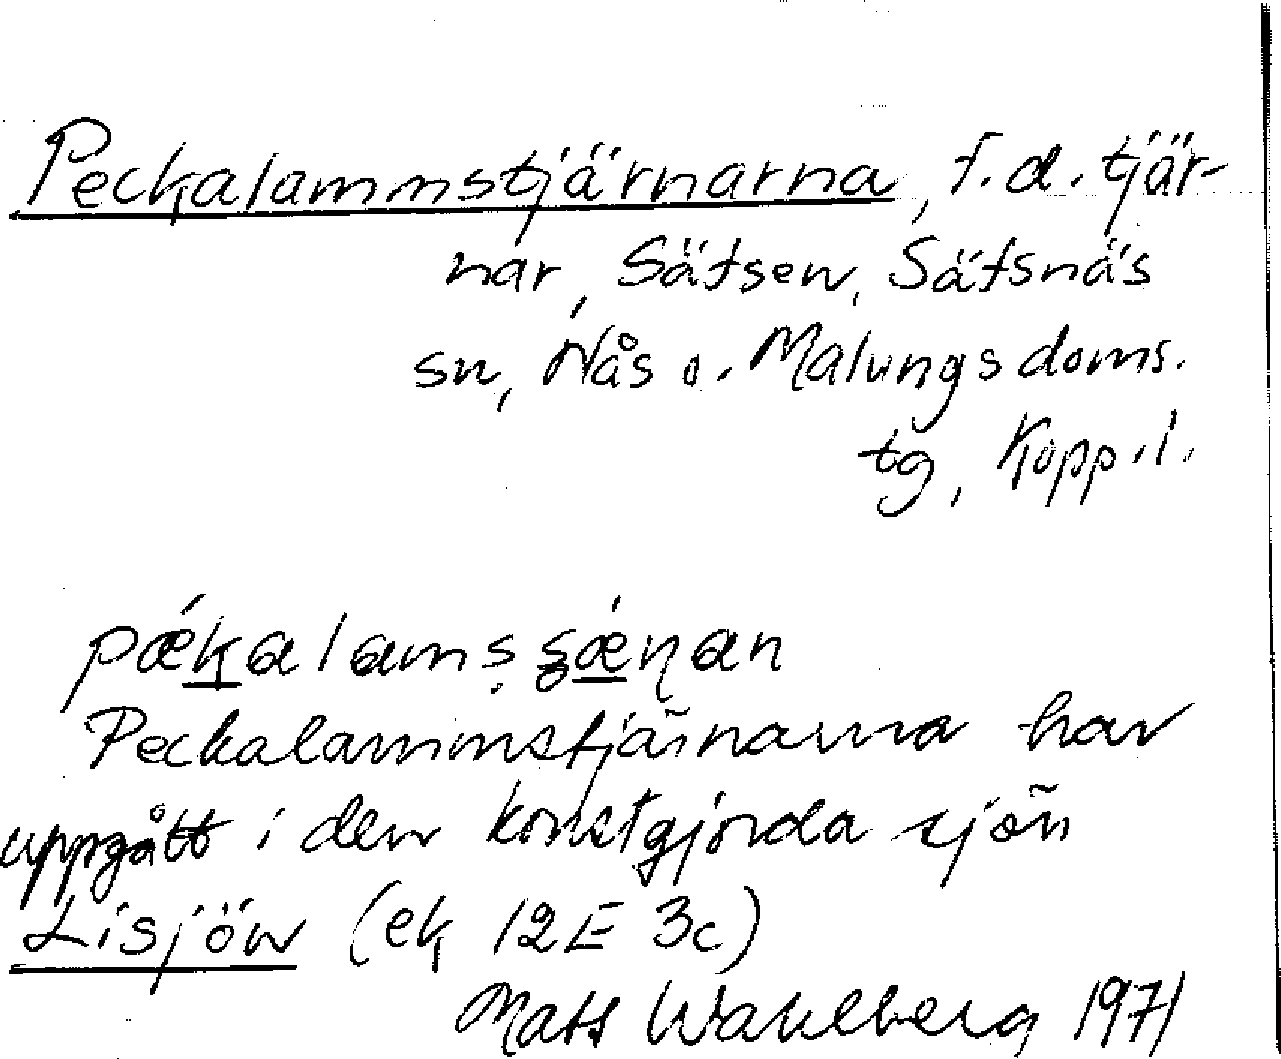 Peckalammstjärnarna, f.d. tjär-
nar, Sätsen, Sätsnäs
sn, Nås o. Malungs doms.
tg, Kopp. l.
pǽkalamsʂǽɳan
Peckalammstjärnarna har
uppgått i den konstgjorda sjön
Lisjön (ek 12E 3c)
Mats Wahlberg 1971